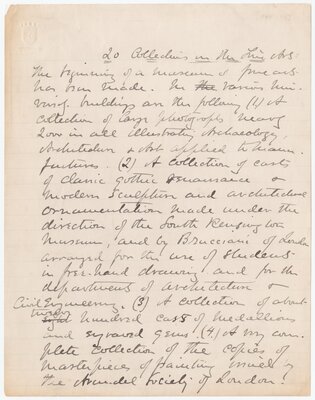 20 Collections in the Fine Arts.
The beginning of a museum of fine arts
has been made. In the various Uni-
versity buildings are the following (1) A
collection of large photographs nearly
2000 in all illustrating Archaeology,
Architecture & Art applied to Manu-
factures. (2) A collection of casts
of classic gothic renaissance &
modern Sculpture and architectural
ornamentation made under the
direction of the South Kensington
Museum, and by Brucciani of London
arranged for the use of students
in free-hand drawing and for the
departments of architecture &
Civil Engineering. (3) A collection of about
eight hundred casts of medallions
and engraved gems. (4) A very com-
plete collection of the copies of
masterpieces of painting issued by
the Arundel Society of London.